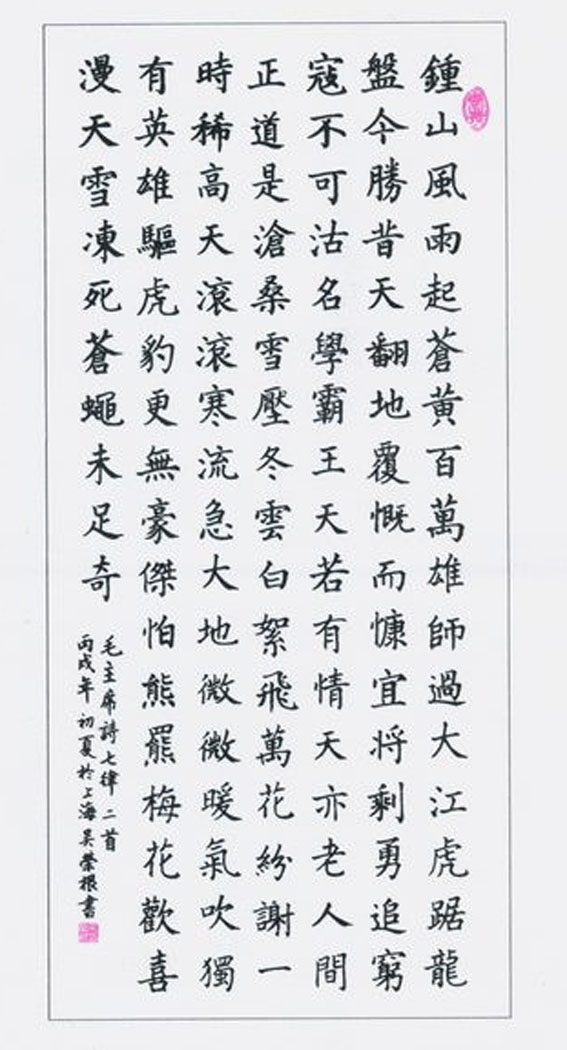 鍾山風雨起蒼黃百萬雄師過大江虎踞龍
盤今勝昔天翻地覆慨而慷宜将剩勇追窮
寇不可沽名學霸王天若有情天亦老人間
正道是滄桑雪壓冬雲白絮飛萬花紛謝一
時稀高天滾滾寒流急大地微微暖氣吹獨
有英雄驅虎豹更無豪傑怕熊羆梅花歡喜
漫天雪凍死蒼蠅未足奇
毛主席詩七律二首
丙戌年初夏於上海吳榮根書